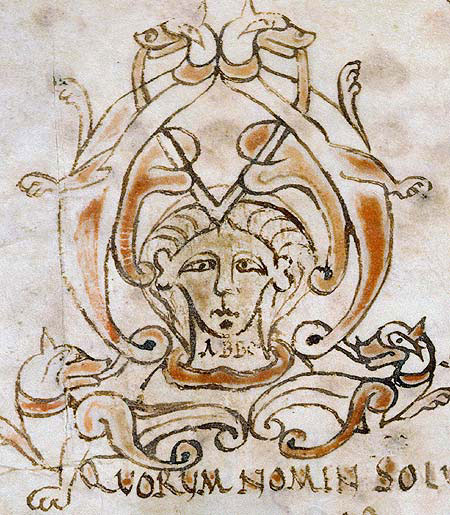 ABBO
QUORUM NOMIN SOLU